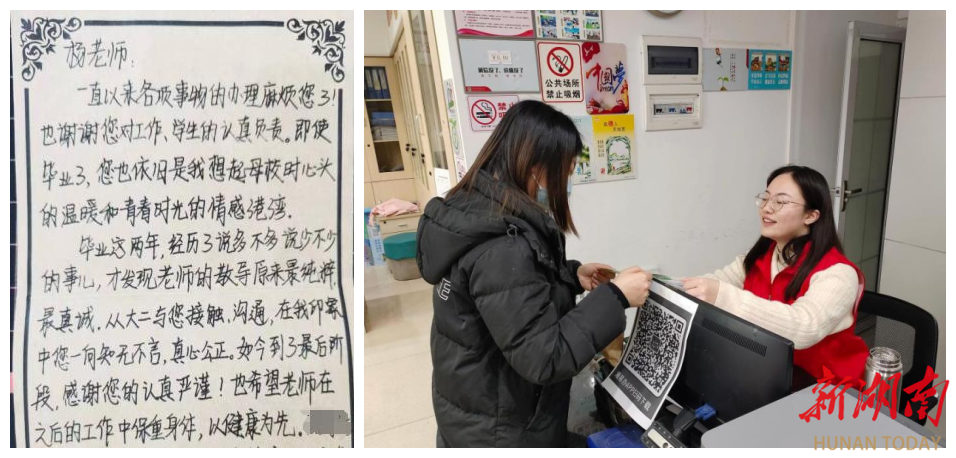 杨老师:
一直以来各项事物的办理麻烦您了!
也谢谢您对工作、学生的认真负责。即使
毕业了,您也依旧是我想起母校时心头
的温暖和青春时光的情感港湾.
毕业这两年,经历了说多不多说少不少
的事儿,才发现老师的教导原来最纯粹,
最真诚.从大二与您接触、沟通,在我印象
中您一向知无不言,真心公正。如今到了最后阶
段,感谢您的认真严谨!也希望老师在
之后的工作中保重身体,以健康为先.
公共场所
禁止吸烟
中国梦
禁止
新湖南
HUNAN TODAY